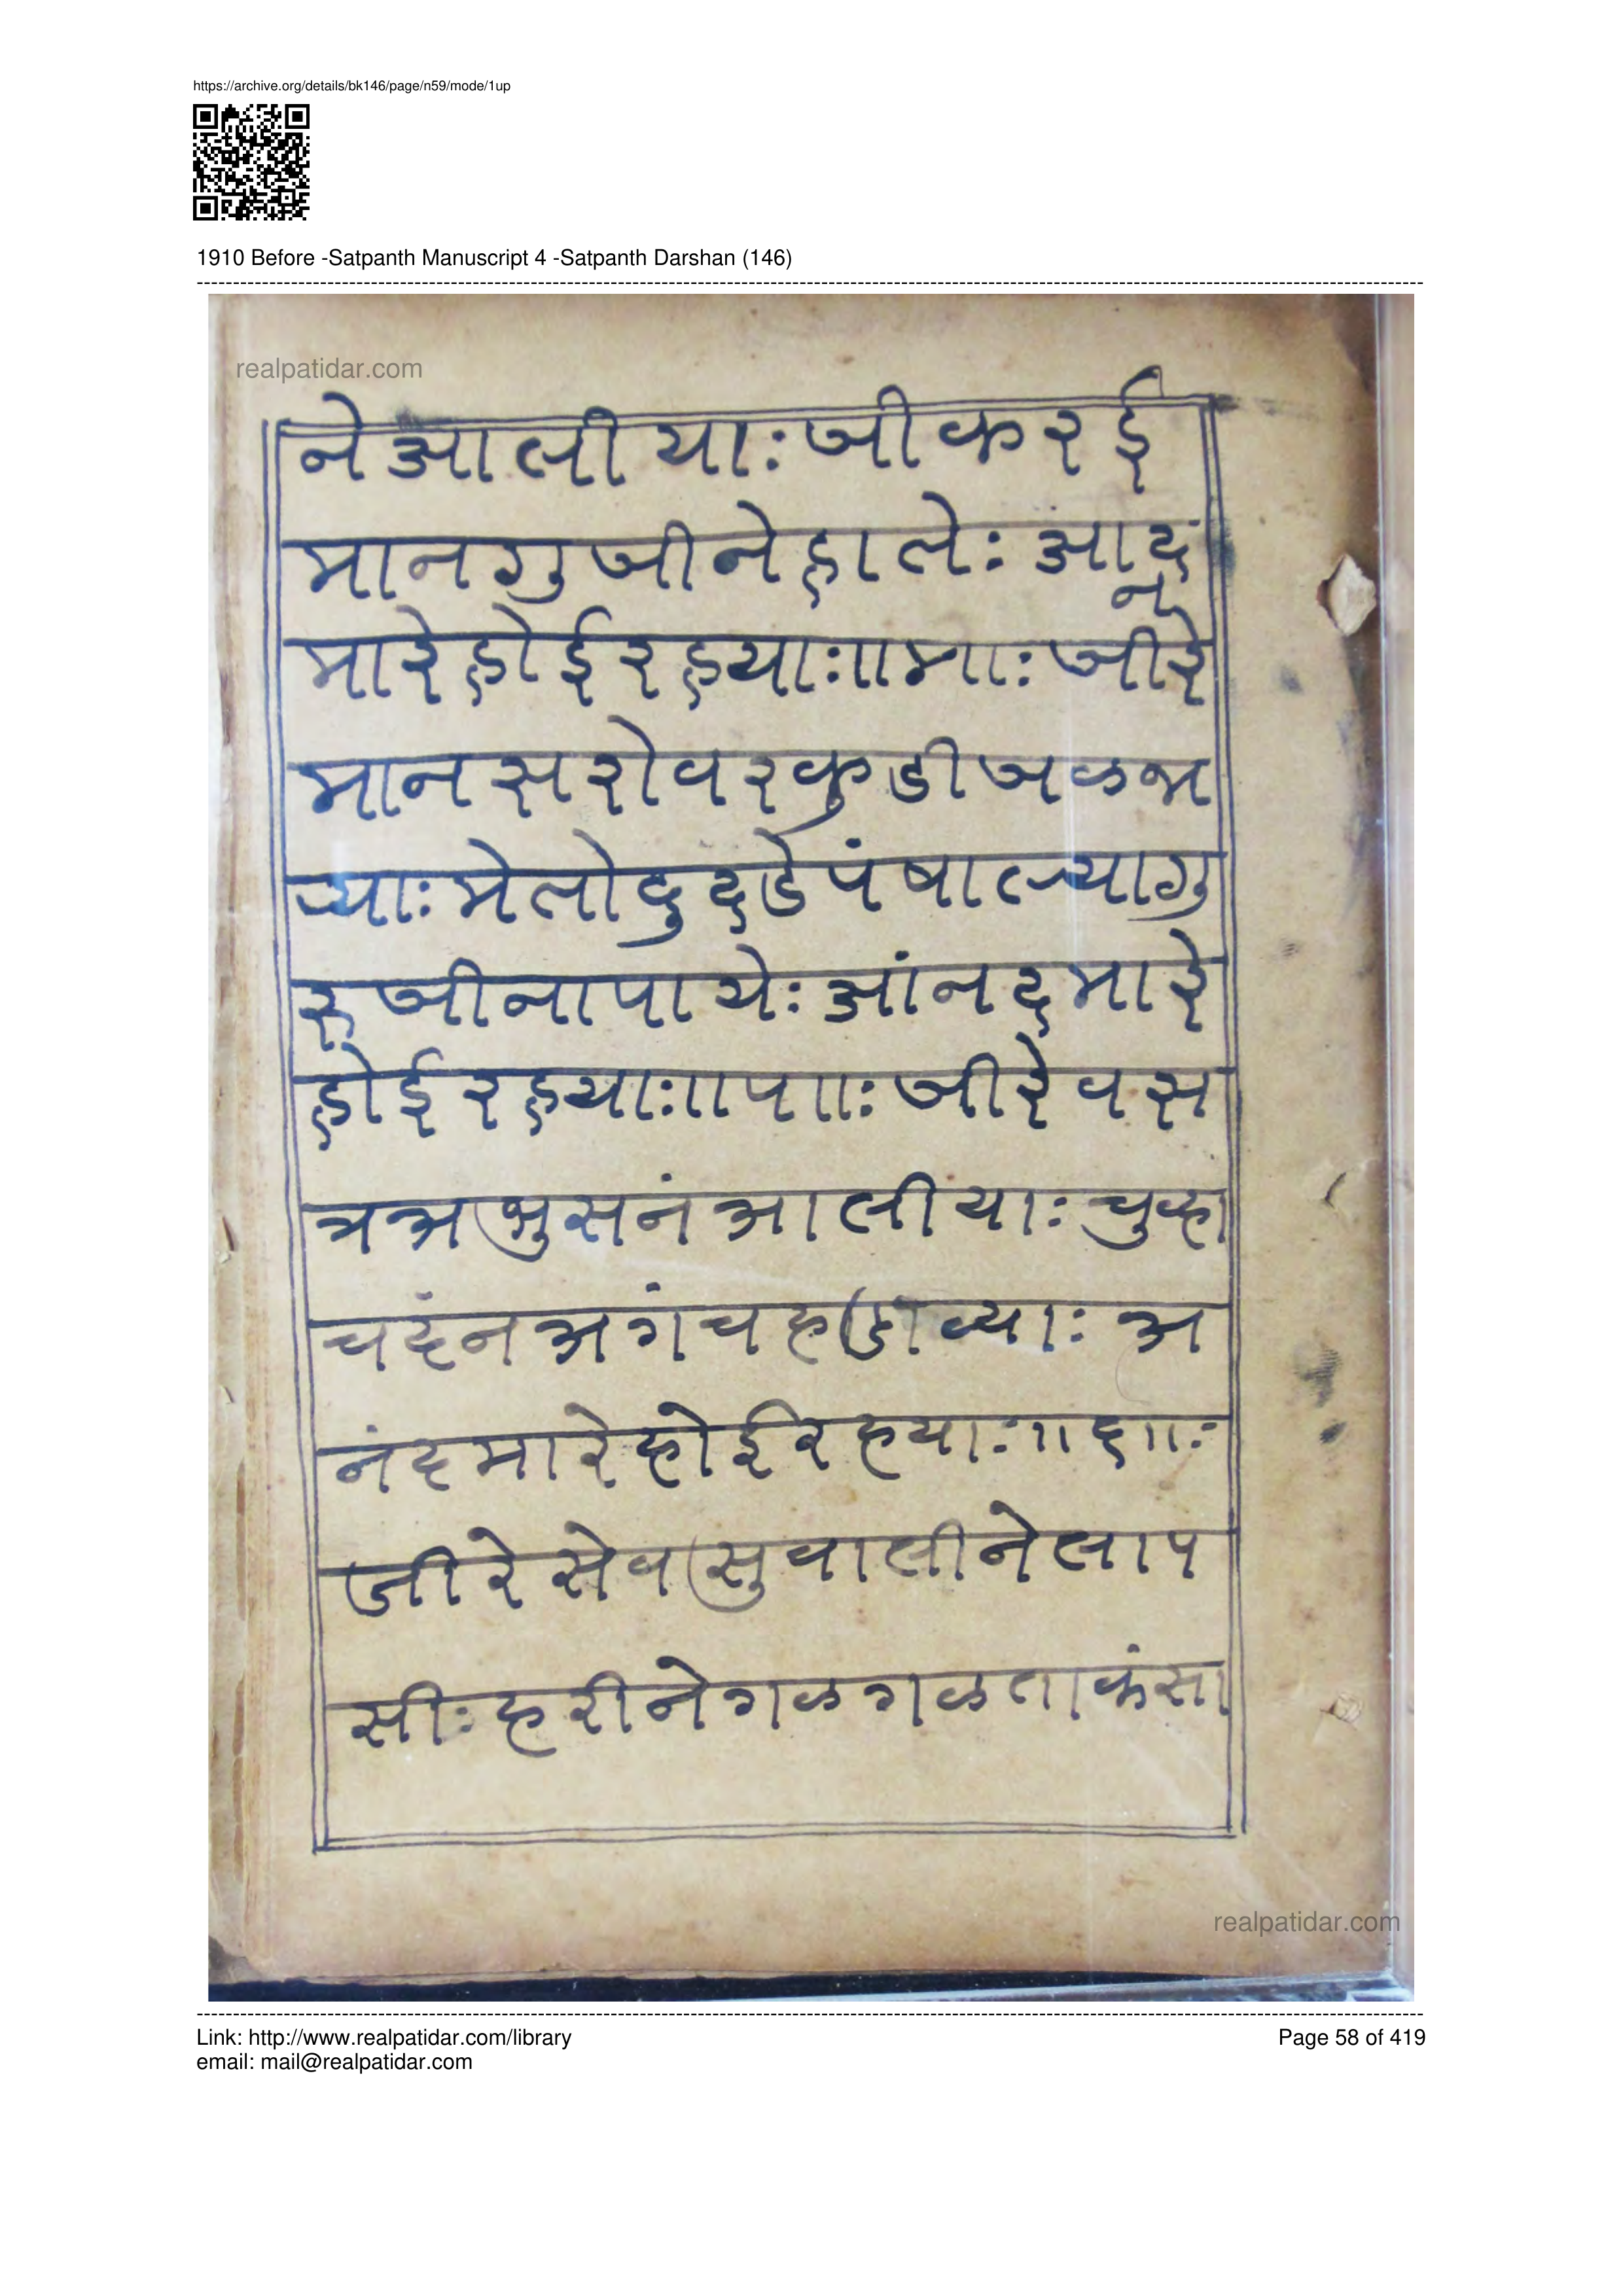 https://archive.org/details/bk146/page/n59/mode/1up
1910 Before -Satpanth Manuscript 4 -Satpanth Darshan (146)
realpatidar.com
ने आ ली याः जी क र ई
मा न गु जी ने हा ले ः आ द
न
मा रे हो ई र ह याः ॥ ४ ॥ ः जी रे
मा न स रो व र कु डी ज ळ भ
र्‍याः मे तो दु द डे पं षा ल्या गु
रु जी ना पा ये ः आं न द मा रे
हो ई र ह याः ॥ ५ ॥ ः जी रे व स
त्र अ भु स नं आ ली याः चु व्हा
च दं न अ गं च ह डा व्याः अ
नं द मा रे हो ई र ह याः ॥ ६ ॥ ः
जी रे से व सु वा ली ने ला प
सी ः ह री ने ग ळ ग ळ ता कं सा
realpatidar.com
Link: http://www.realpatidar.com/library
Page 58 of 419
email: mail@realpatidar.com